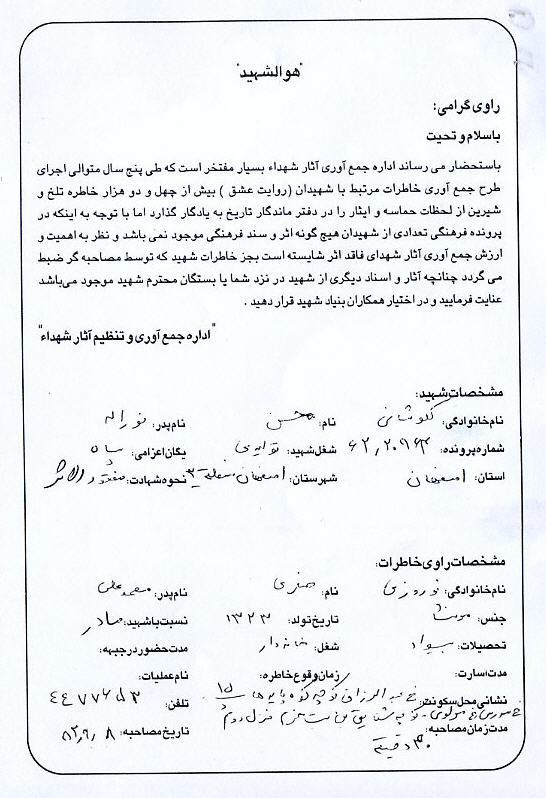 "هوالشهید"
راوی گرامی:
باسلام و تحیت
باستحضار می رساند اداره جمع آوری آثار شهداء بسیار مفتخر است که طی پنج سال متوالی اجرای
طرح جمع آوری خاطرات مرتبط با شهیدان (روایت عشق ) بیش از چهل و دو هزار خاطره تلخ و
شیرین از لحظات حماسه و ایثار را در دفتر ماندگار تاریخ به یادگار گذارد اما با توجه به اینکه در
پرونده فرهنگی تعدادی از شهیدان هیچ گونه اثر و سند فرهنگی موجود نمی باشد و نظر به اهمیت و
ارزش جمع آوری آثار شهدای فاقد اثر شایسته است بجز خاطرات شهید که توسط مصاحبه گر ضبط
می گردد چنانچه آثار و اسناد دیگری از شهید در نزد شما یا بستگان محترم شهید موجود می‌باشد
عنایت فرمایید و در اختیار همکاران بنیاد شهید قرار دهید .
"اداره جمع آوری و تنظیم آثار شهداء"
مشخصات شهید:
نام خانوادگی: نام: محسن نام پدر:
شماره پرونده: شغل شهید: یگان اعزامی: سپاه
استان: اصفهان شهرستان: اصفهان منطقه ۳ نحوه شهادت: مفقودالاثر
مشخصات راوی خاطرات:
نام خانوادگی: نوروزی نام: صغری نام پدر: محمدعلی
جنس: مونث تاریخ تولد: ۱۳۲۳ نسبت با شهید: مادر
تحصیلات: بیسواد شغل: خانه دار مدت حضور در جبهه:
مدت اسارت: زمان وقوع خاطره: نام عملیات:
نشانی محل سکونت: خ عبدالرزاق تلفن: ۴۴۷۷۶۵۳
مدت زمان مصاحبه: ۳۰ دقیقه تاریخ مصاحبه: ۸۳,۹,۸